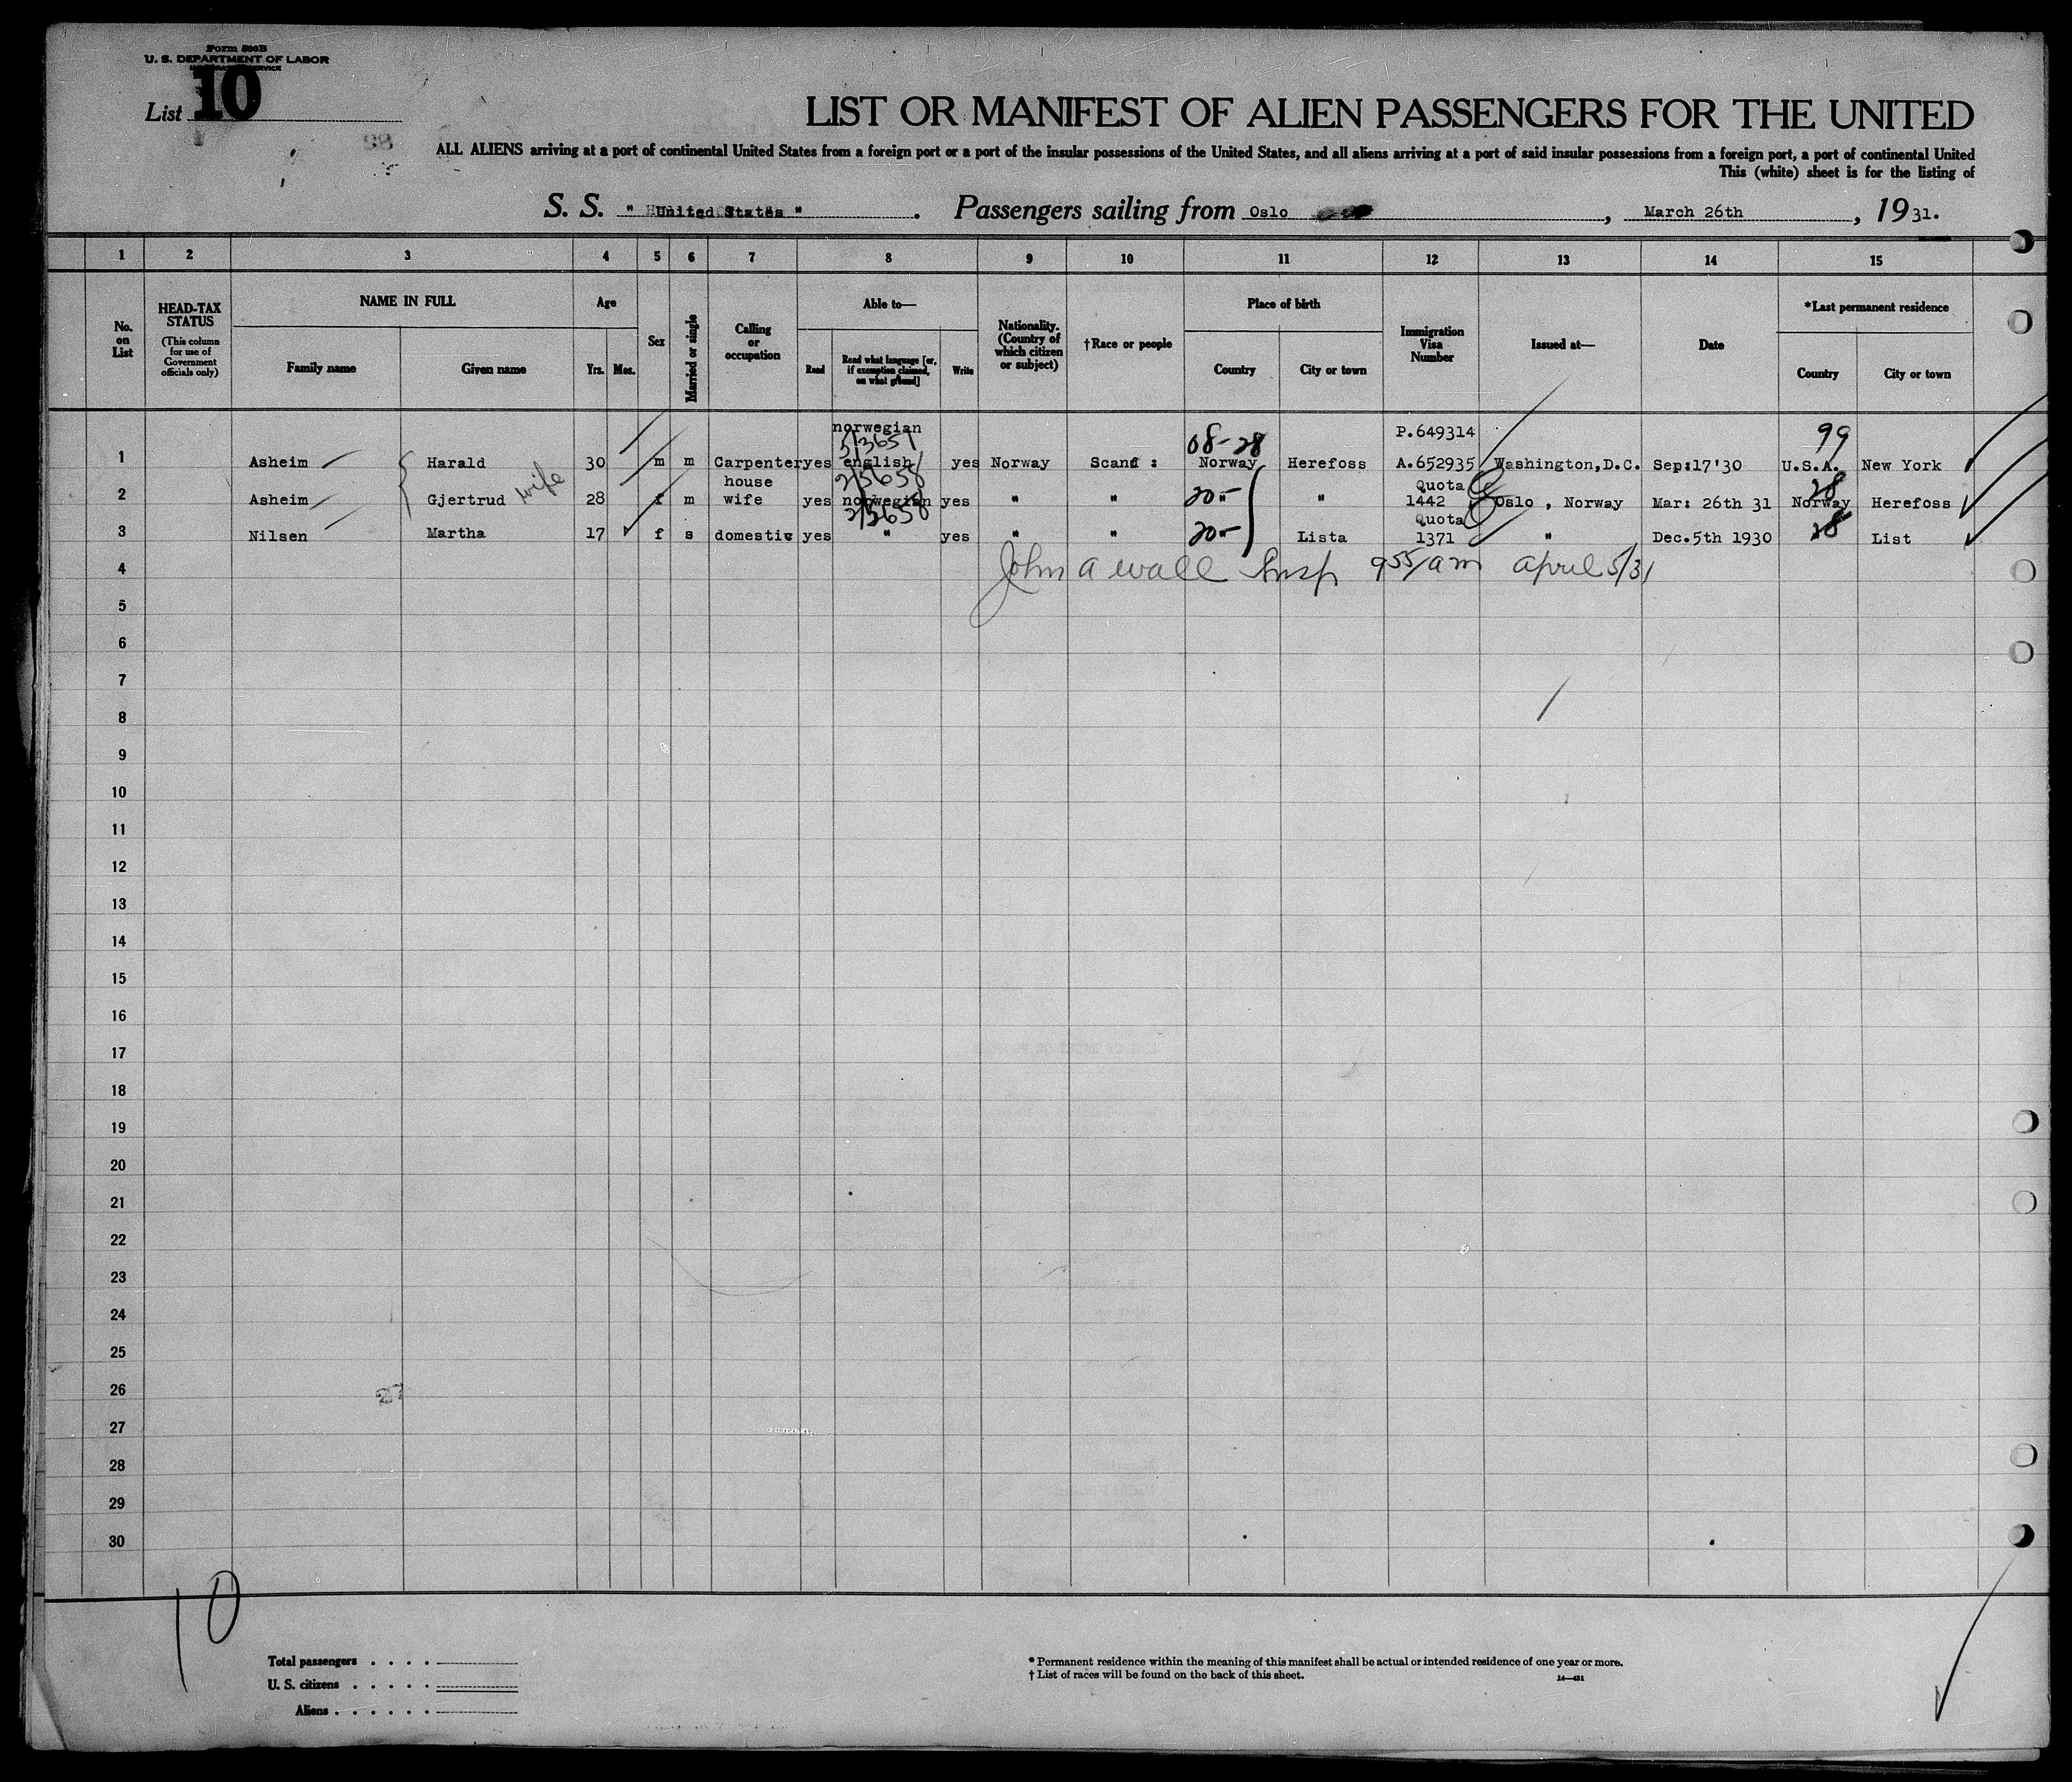 Form 500B
U. S. DEPARTMENT OF LABOR
List 10
LIST OR MANIFEST OF ALIEN PASSENGERS FOR THE UNITED
ALL ALIENS arriving at a port of continental United States from a foreign port or a port of the insular possessions of the United States, and all aliens arriving at a port of said insular possessions from a foreign port, a port of continental United
This (white) sheet is for the listing of
S. S. " United States " . Passengers sailing from Oslo , March 26th , 1931.
1 2 3 4 5 6 7 8 9 10 11 12 13 14 15
No. on List
HEAD-TAX STATUS
(This column for use of Government officials only)
NAME IN FULL
Family name
Given name
Age
Yrs. Mos.
Sex
Married or single
Calling or occupation
Able to—
Read
Read what language [or, if exemption claimed, on what ground]
Write
Nationality. (Country of which citizen or subject)
†Race or people
Place of birth
Country
City or town
Immigration Visa Number
Issued at—
Date
*Last permanent residence
Country
City or town
norwegian P.649314
5/3657 08-28 99
1 Asheim Harald 30 m m Carpenter yes english yes Norway Scand : Norway Herefoss A.652935 Washington,D.C. Sep:17'30 U.S.A. New York
house 2/5658 Quota 28
2 Asheim Gjertrud wife 28 f m wife yes norwegian yes " " 20 " " 1442 Oslo , Norway Mar: 26th 31 Norway Herefoss
2/5658 Quota 28
3 Nilsen Martha 17 f s domestic yes " yes " " 20 " Lista 1371 " Dec.5th 1930 " List
4 John A Wall Insp 955/am April 5/31
5
6
7
8
9
10
11
12
13
14
15
16
17
18
19
20
21
22
23
24
25
26
27
28
29
30
10
Total passengers . . . .
U. S. citizens . . . . .
Aliens . . . . . .
* Permanent residence within the meaning of this manifest shall be actual or intended residence of one year or more.
† List of races will be found on the back of this sheet.
14—431